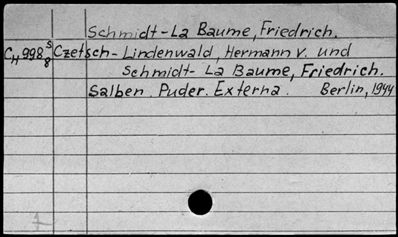 Schmidt-La Baume, Friedrich.
CH998 S8 Czetsch-Lindenwald, Hermann v. und
Schmidt-La Baume, Friedrich.
Salben. Puder. Externa. Berlin, 1944